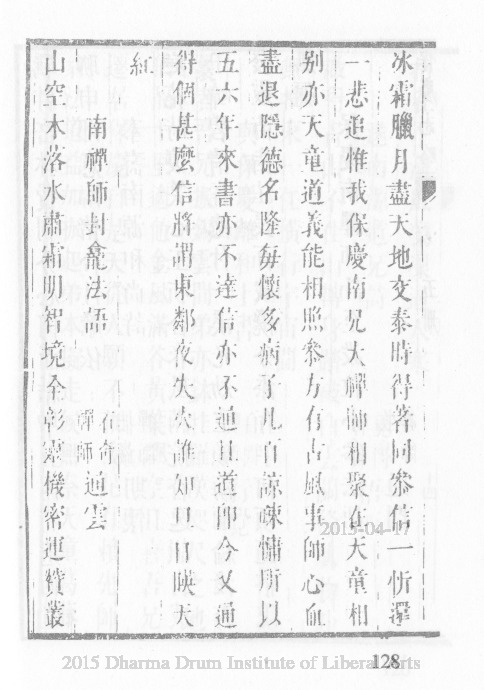 冰霜臘月盡天地交泰時得著同參信一忻還
一悲追惟我保慶南兄大禪師相聚在天童相
別亦天童道義能相照參方有古風事師心血
盡退隱德名隆每懷多病了札自諒疎慵所以
五六年來書亦不達信亦不通且道即今又通
得個甚麼信將謂東鄰夜失火誰知日日映天
紅
南禪師封龕法語
石奇禪師通雲
山空木落水肅霜明智境全彰靈機密運贊叢
2015-04-17
128
2015 Dharma Drum Institute of Liberal Arts